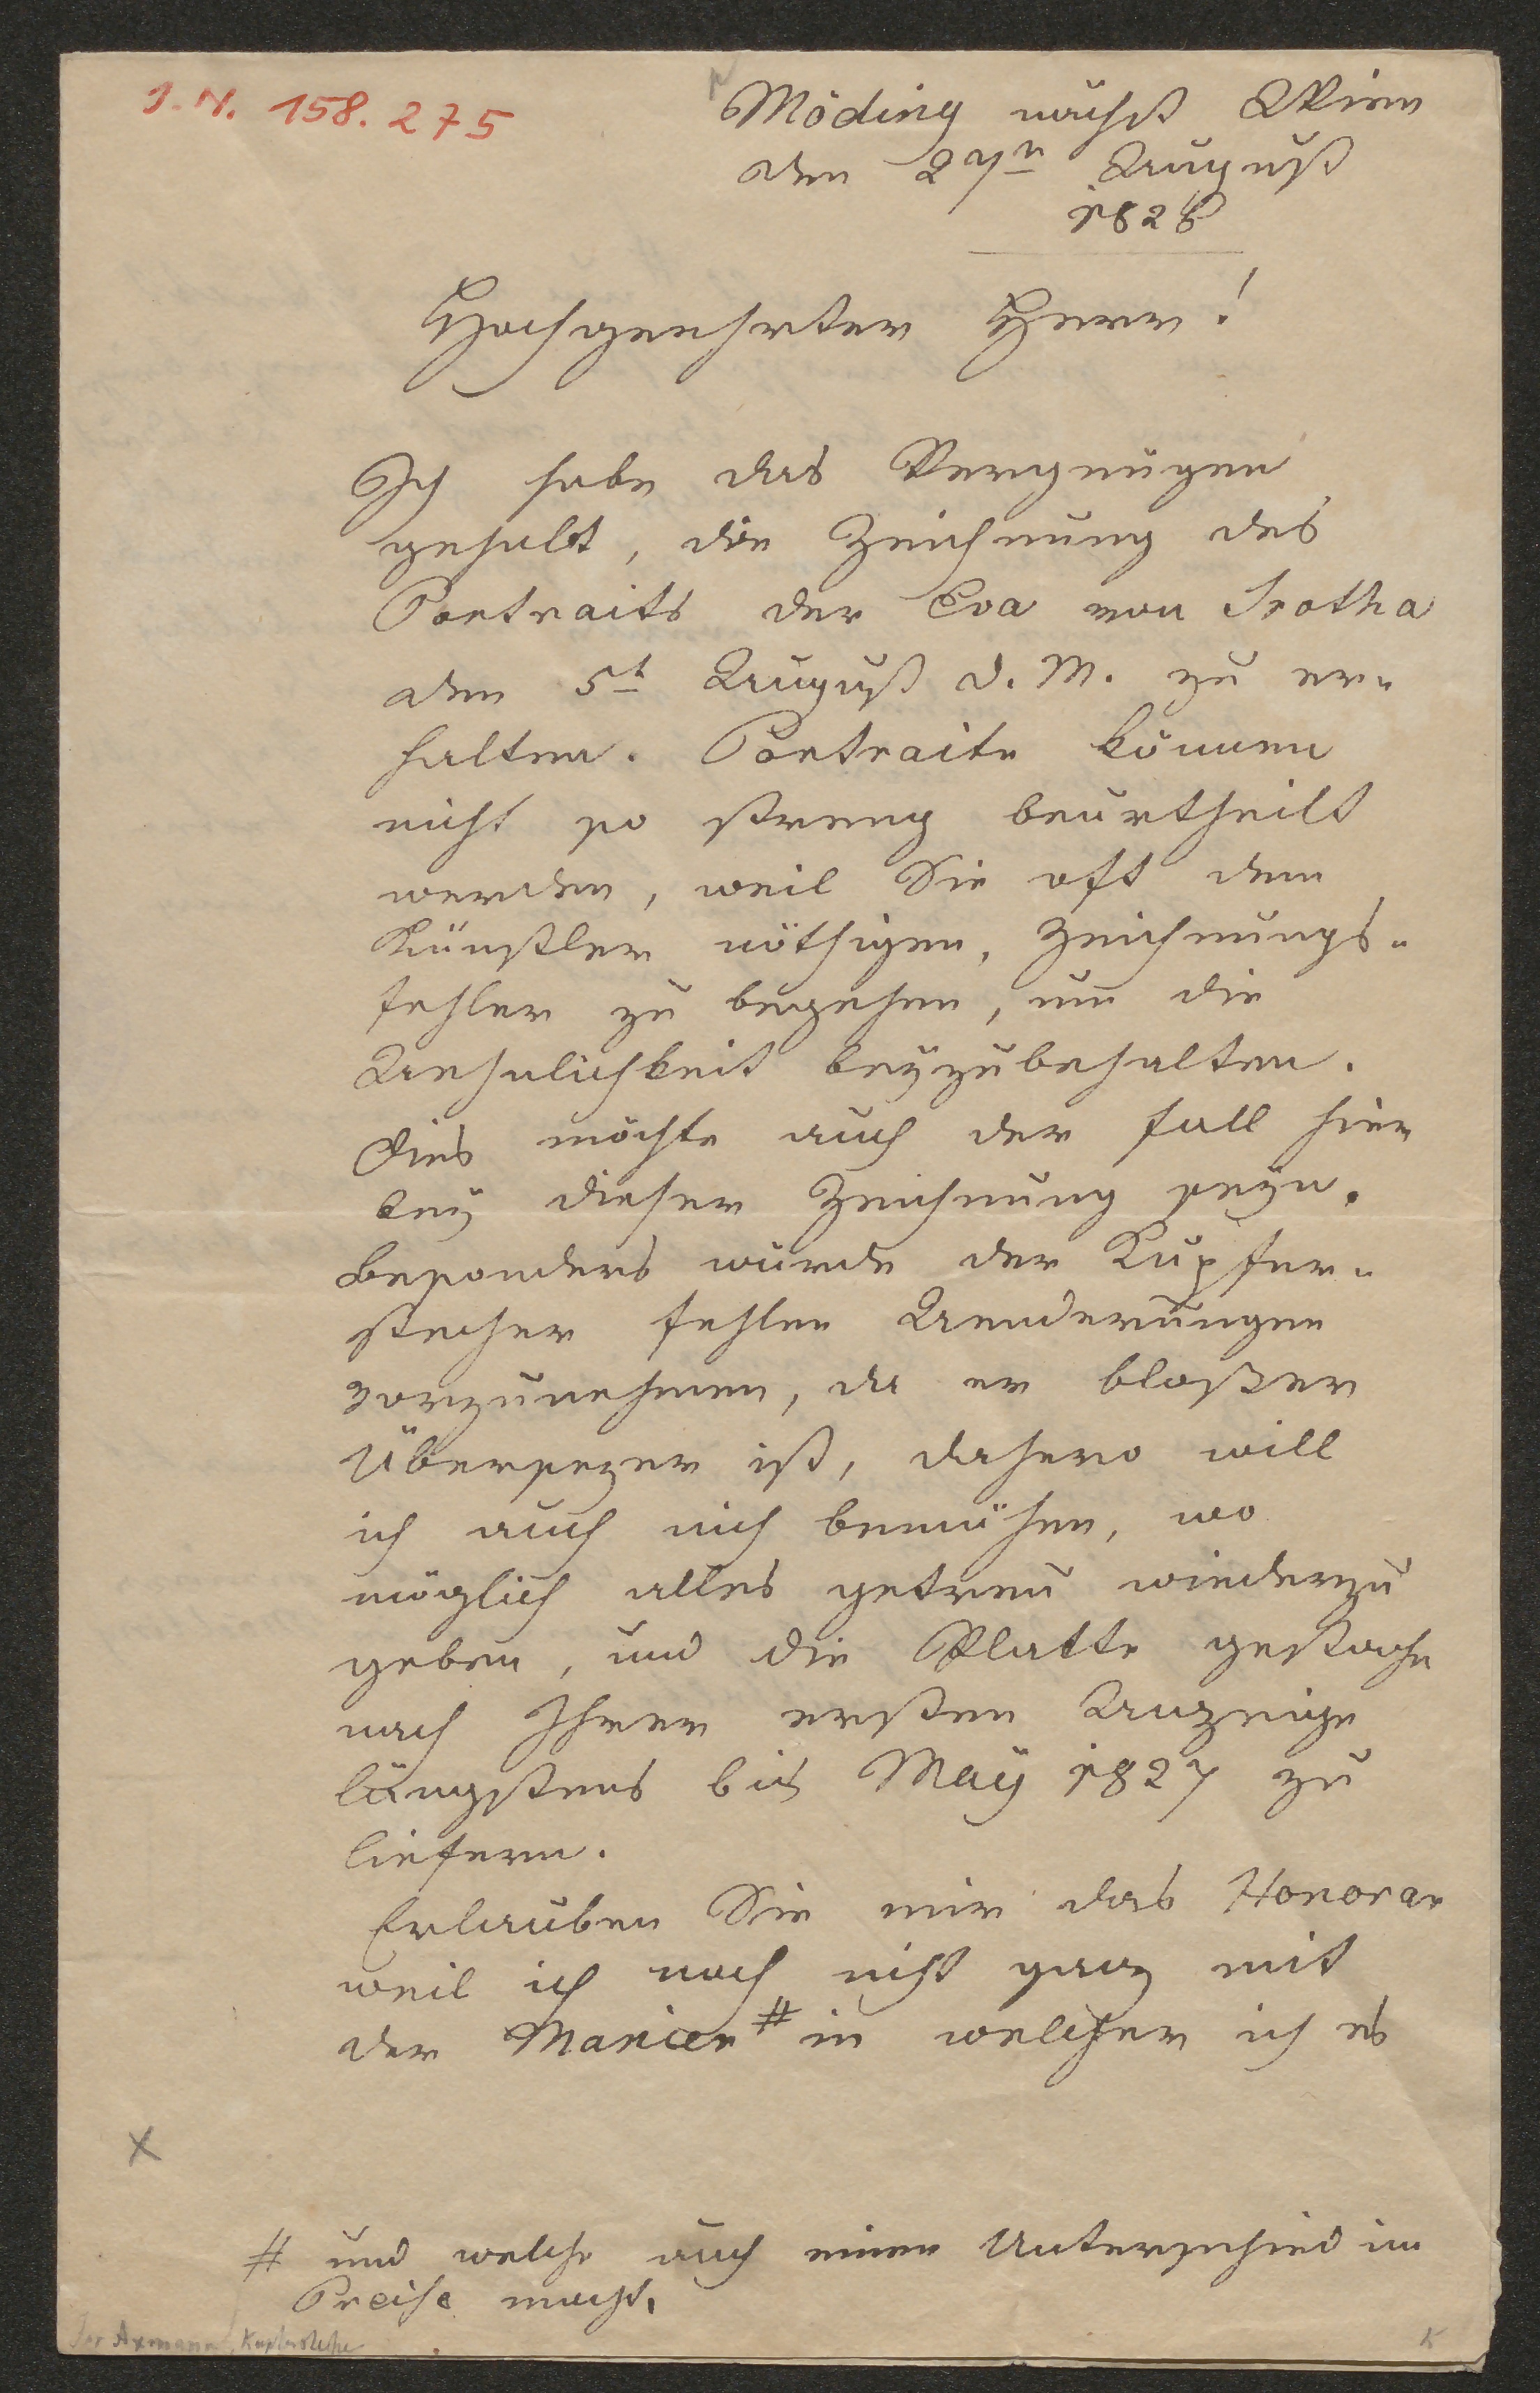 I. N. 158.275
Möding nächst Wien
den 27n August
1828
Hochgeehrter Herr!
Ich habe das Vergnügen
gehabt, die Zeichnung des
Portraits der Eva von Trotha
den 5t August d. M. zu er-
halten. Portraite können
nicht so streng beurtheilt
werden, weil Sie oft dem
Künstler nöthigen, Zeichnungs-
fehler zu begehen, um die
Aehnlichkeit beyzubehalten.
Dies möchte auch der fall hier
bey dieser Zeichnung seyn.
Besonders würde der Kupfer-
stecher fehlen Aenderungen
vorzunehmen, da er bloßer
Übersezer ist, dahero will
ich auch mich bemühen, wo
möglich alles getreu wiederzu
geben, und die Platte gestochn
nach Ihrer ersten Anzeige
längstens bis May 1827 zu
liefern.
Erlauben Sie mir das Honorar
weil ich noch nicht ganz mit
der Manier # in welcher ich es
# und welche auch einen Unterschied im
Preise macht.
Jos Axmann, Kupferstecher